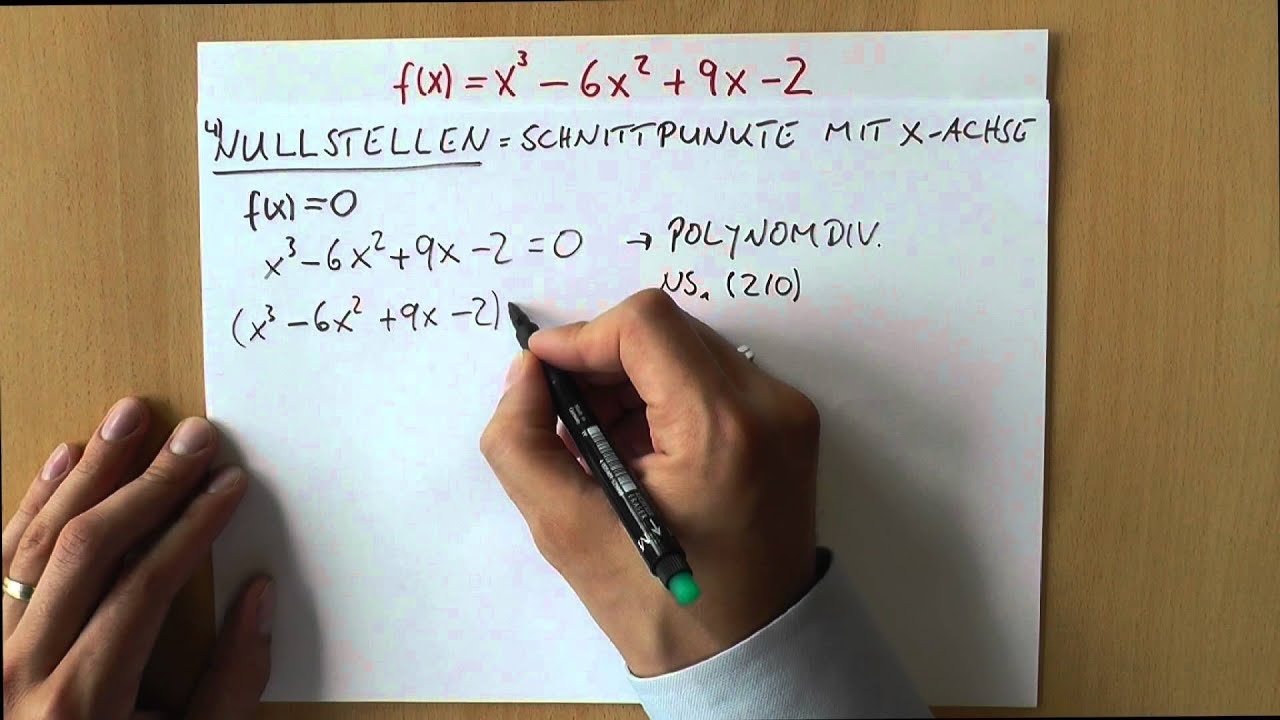 f(x) = x³ - 6x² + 9x - 2
4) NULLSTELLEN = SCHNITTPUNKTE MIT X-ACHSE
f(x) = 0
x³ - 6x² + 9x - 2 = 0 → POLYNOMDIV.
NS₁ (2/0)
(x³ - 6x² + 9x - 2)